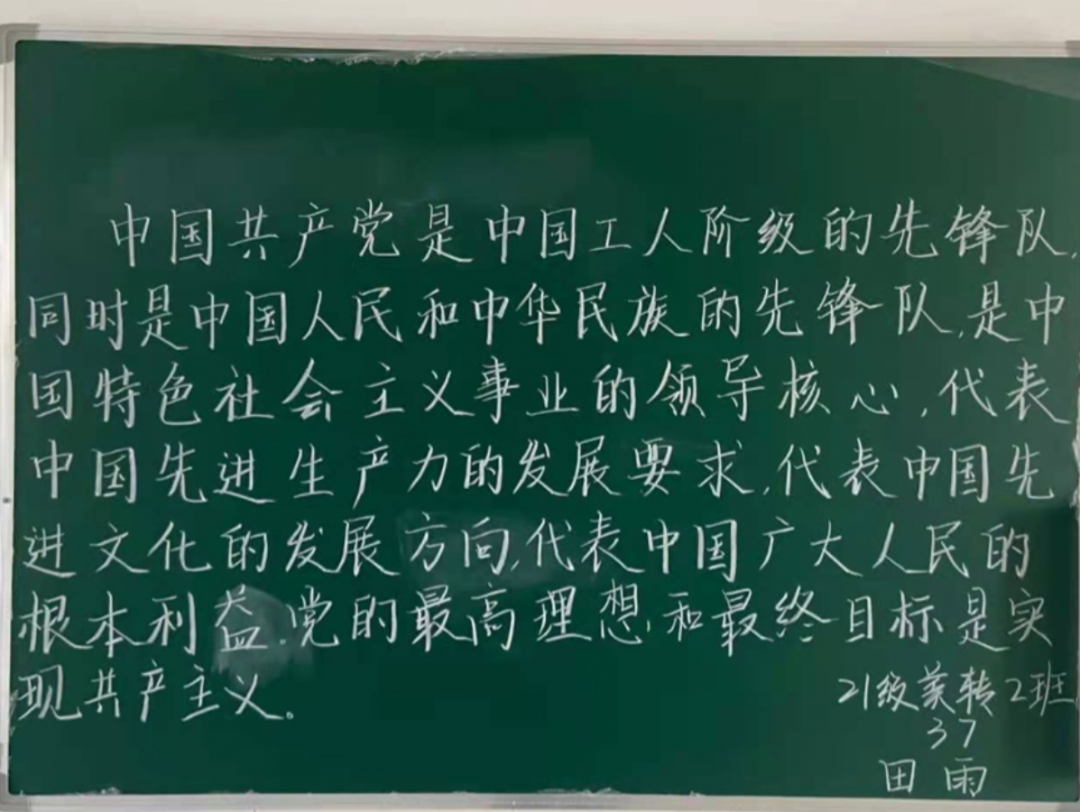 中国共产党是中国工人阶级的先锋队,
同时是中国人民和中华民族的先锋队,是中
国特色社会主义事业的领导核心,代表
中国先进生产力的发展要求,代表中国先
进文化的发展方向,代表中国广大人民的
根本利益.党的最高理想和最终目标是实
现共产主义。
21级美转2班
37
田雨